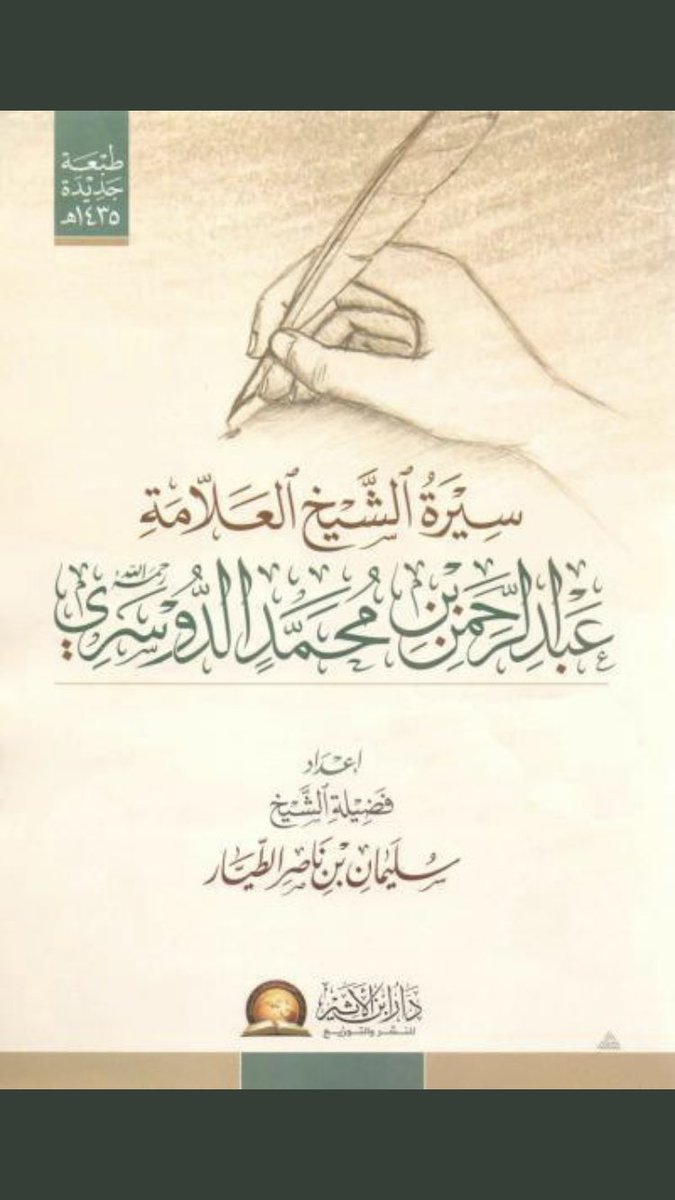 طبعة
جديدة
١٤٣٥هـ
سِيْرَةُ الشَّيْخِ العَلَّامَةِ
عَبْدِ الرَّحْمَنِ بْنِ مُحَمَّدٍ الدُّوسَرِي رحمه الله
إعْدَاد
فَضِيْلَةِ الشَّيْخِ
سُلَيْمَانِ بْنِ نَاصِرِ الطَّيَّار
دَارُ ابْنِ الأَثِيْرِ
للنشر والتوزيع